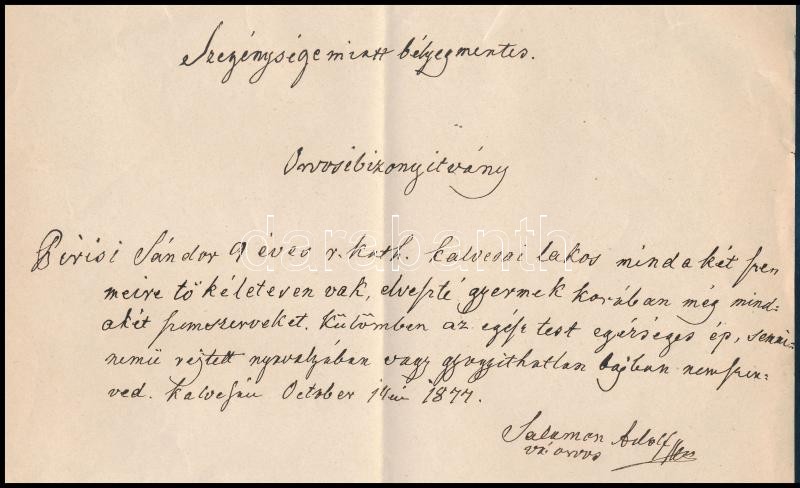 Szegénysége miatt bélyegmentes.
Orvosi bizonyitvány
Pirisi Sándor 9 éves r. kath. lakos mind a két szem
meire tökéletesen vak, elvesztė gyermek korában még mind-
akét szemszerveket. Külömben az egész test egésséges ép, semmi-
nemü rejtett nyavalyában vagy gyogyithatlan bajban nem szen-
ved. October 14én 1877.
Salamon Adolf
orvos
darabanth